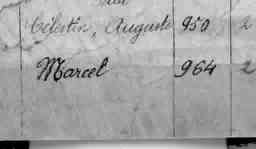 Célestin, Auguste 950 2
Marcel 964 2